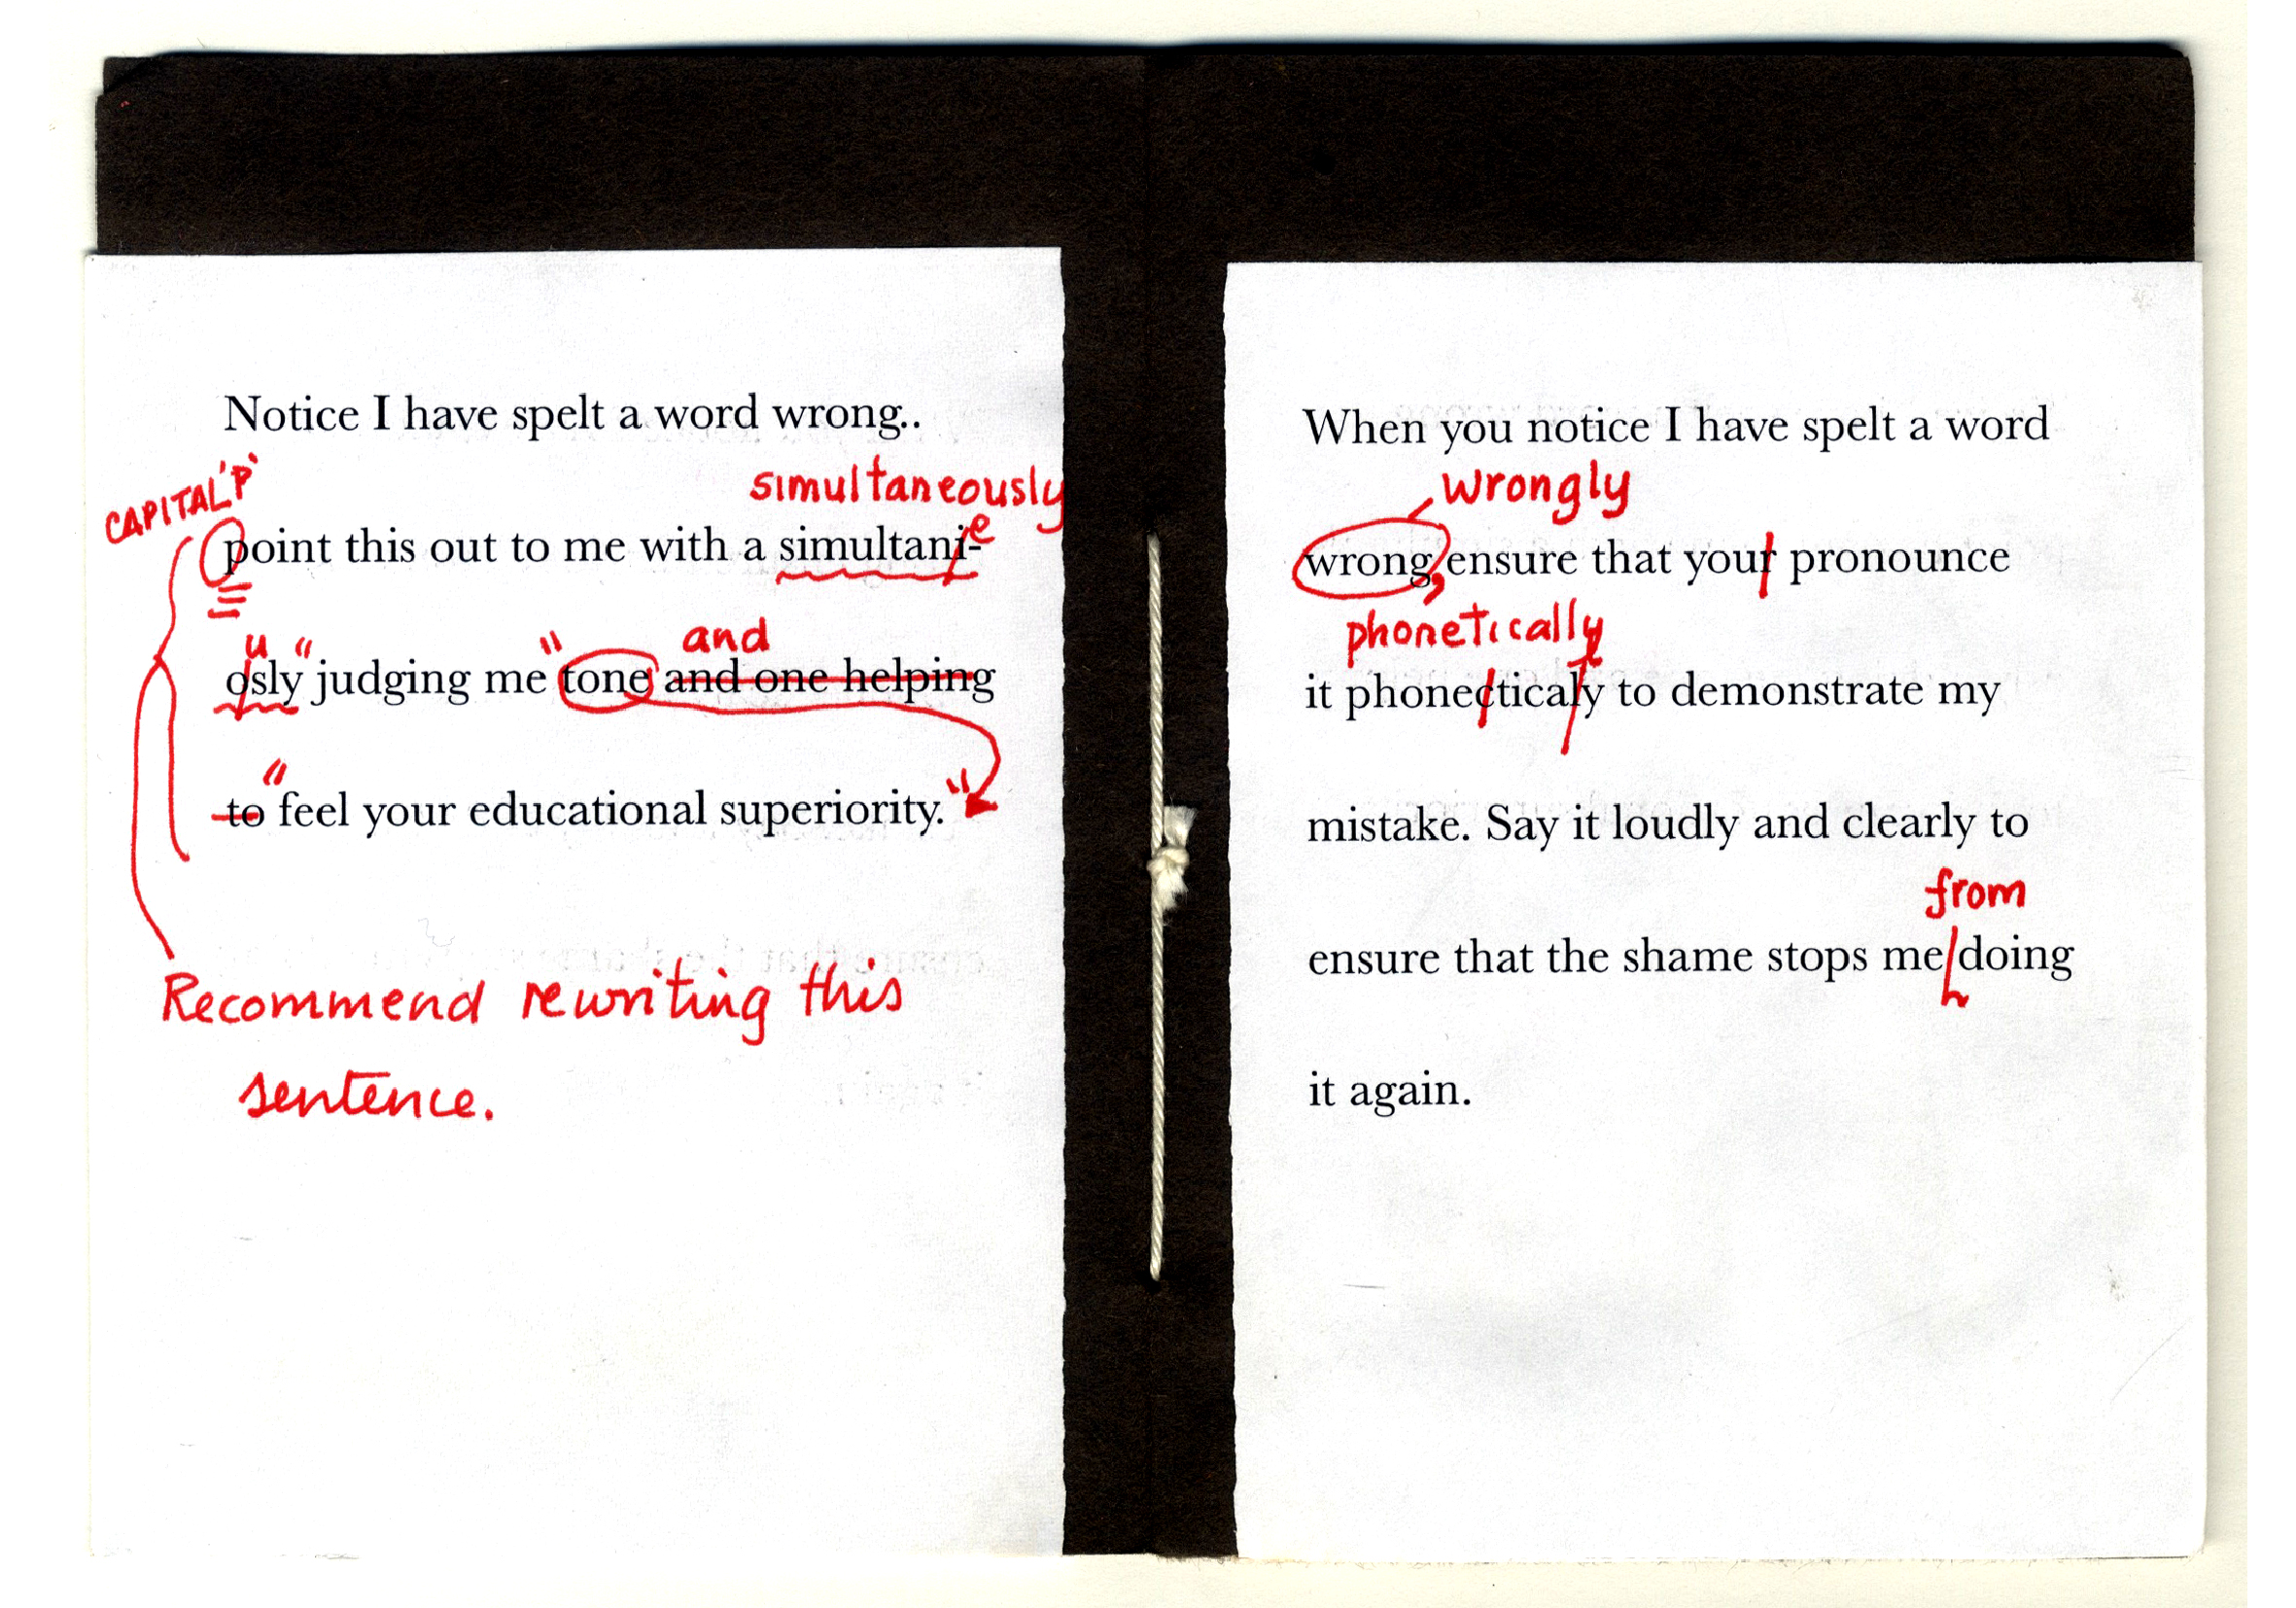 Notice I have spelt a word wrong..
CAPITAL 'P'
simultaneously
point this out to me with a simultani-
e
u " " and
osly judging me tone and one helping
" "
to feel your educational superiority.
Recommend rewriting this
sentence.
When you notice I have spelt a word
wrongly
wrong, ensure that your pronounce
phonetically
it phonecticaly to demonstrate my
mistake. Say it loudly and clearly to
from
ensure that the shame stops me doing
it again.